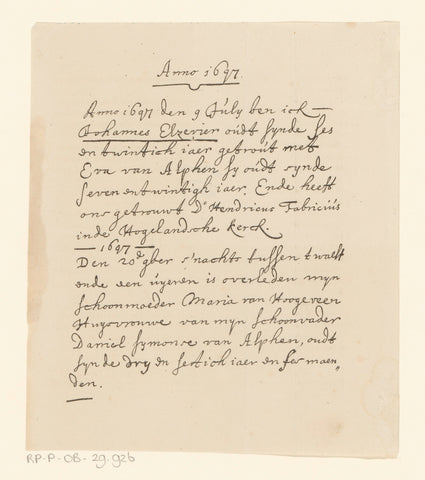 Anno 1697.
Anno 1697 den 9 July ben ick
Johannes Elzevier oudt synde ses
en twintich iaer getrout met
Eva van Alphen sy oudt synde
seven en twintigh iaer. Ende heeft
ons getrouwt Ds Hendricus Fabricius
inde Hogelandsche Kerck.
1697
Den 20 9ber s'nachts tussen twaelf
ende een uyeren is overleden myn
schoonmoeder Maria van Hoogeveen
Huysvrouwe van myn schoonvader
Daniel Symonse van Alphen, oudt
synde dry en sestich iaer en ses maen„
den.
RP-P-OB-29.926